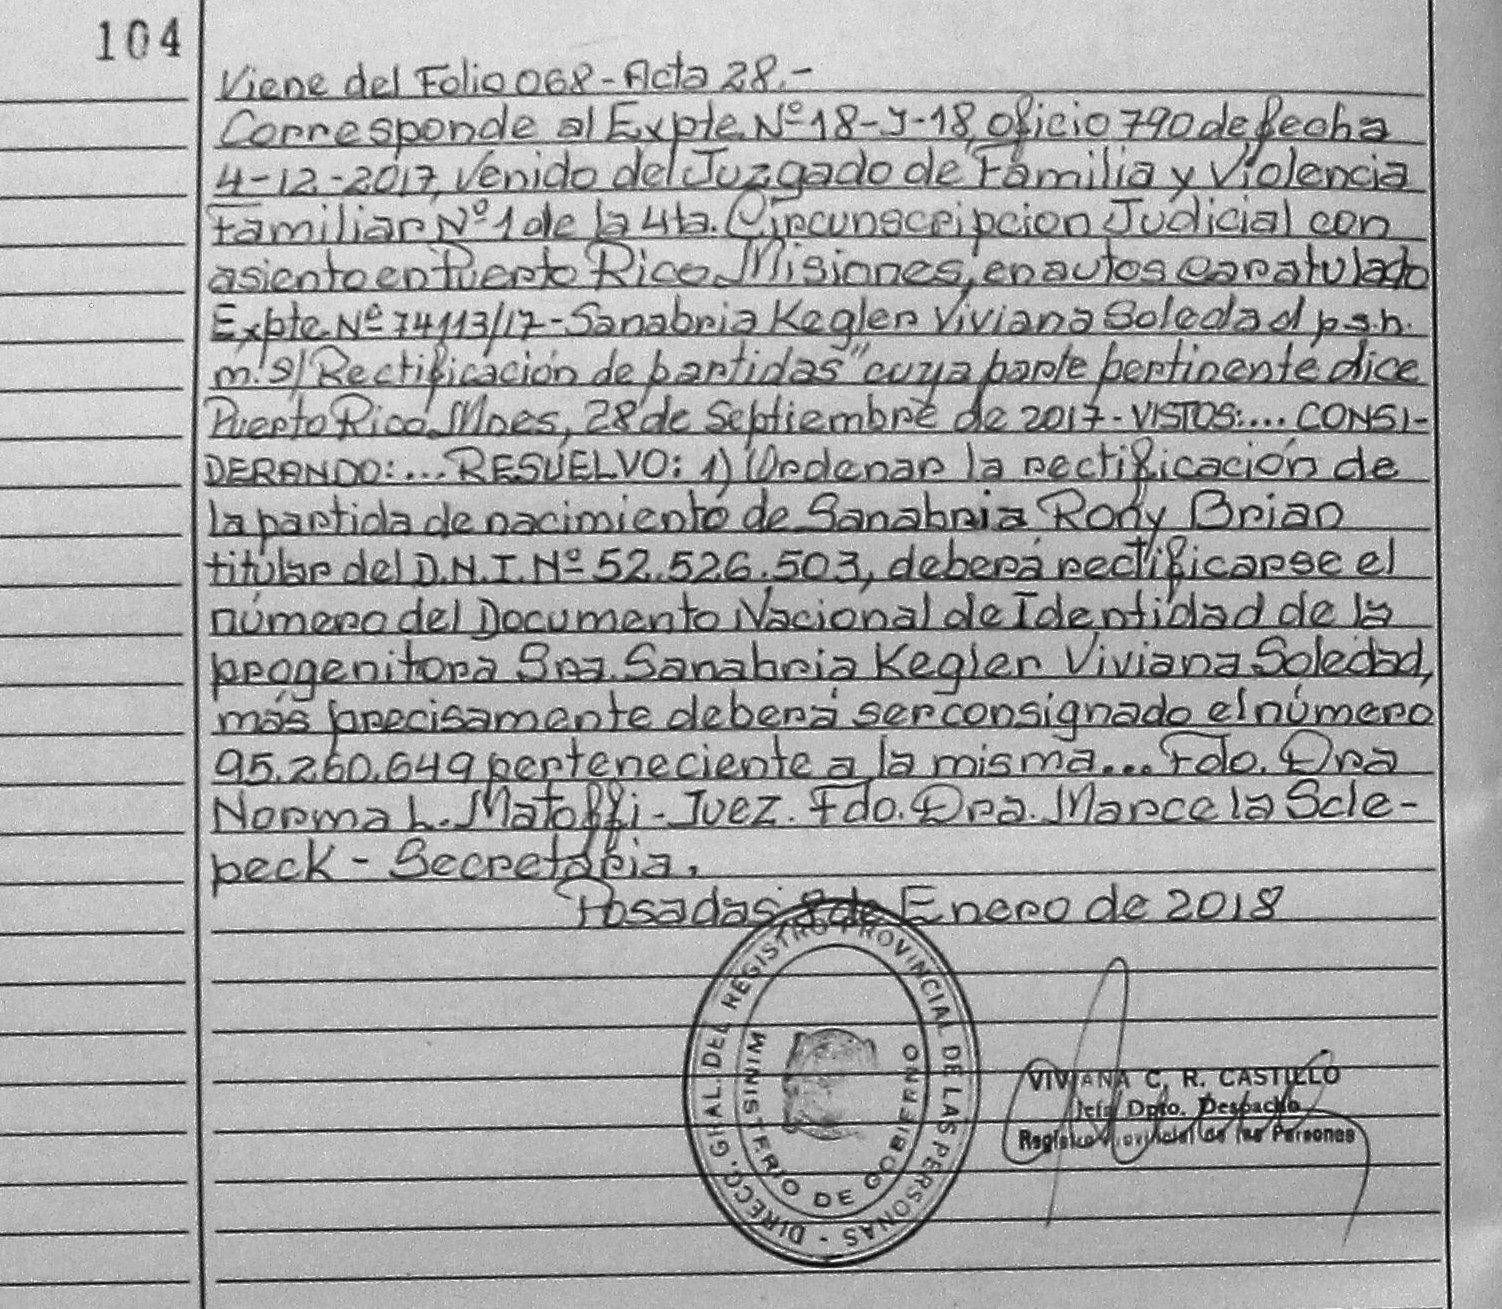 104
Viene del Folio 068 - Acta 28.-
Corresponde al Expte. Nº 18-J-18, oficio 790 de fecha
4-12-2017, venido del Juzgado de Familia y Violencia
Familiar Nº 1 de la 4ta. Circunscripcion Judicial con
asiento en Puerto Rico Misiones, en autos caratulado
Expte Nº 74113/17 - Sanabria Kegler Viviana Soledad p.s.h.
m. s/ Rectificación de partidas" cuya parte pertinente dice
Puerto Rico, Mnes, 28 de Septiembre de 2017 - VISTOS:... CONSI-
DERANDO:... RESUELVO: 1) Ordenar la rectificación de
la partida de nacimiento de Sanabria Rody Brian
titular del D.N.I. Nº 52.526.503, deberá rectificarse el
número del Documento Nacional de Identidad de la
progenitora Sra. Sanabria Kegler Viviana Soledad,
más precisamente deberá ser consignado el número
95.260.649 perteneciente a la misma... Fdo. Dra
Norma L. Matoffi - Juez. Fdo. Dra. Marcela Scle-
peck - Secretaria.
Posadas 8 de Enero de 2018
DIRECC. GRAL. DEL REGISTRO PROVINCIAL DE LAS PERSONAS -
MINISTERIO DE GOBIERNO
VIVIANA C. R. CASTILLO
Jefa Dpto. Despacho
Registro Provincial de las Personas